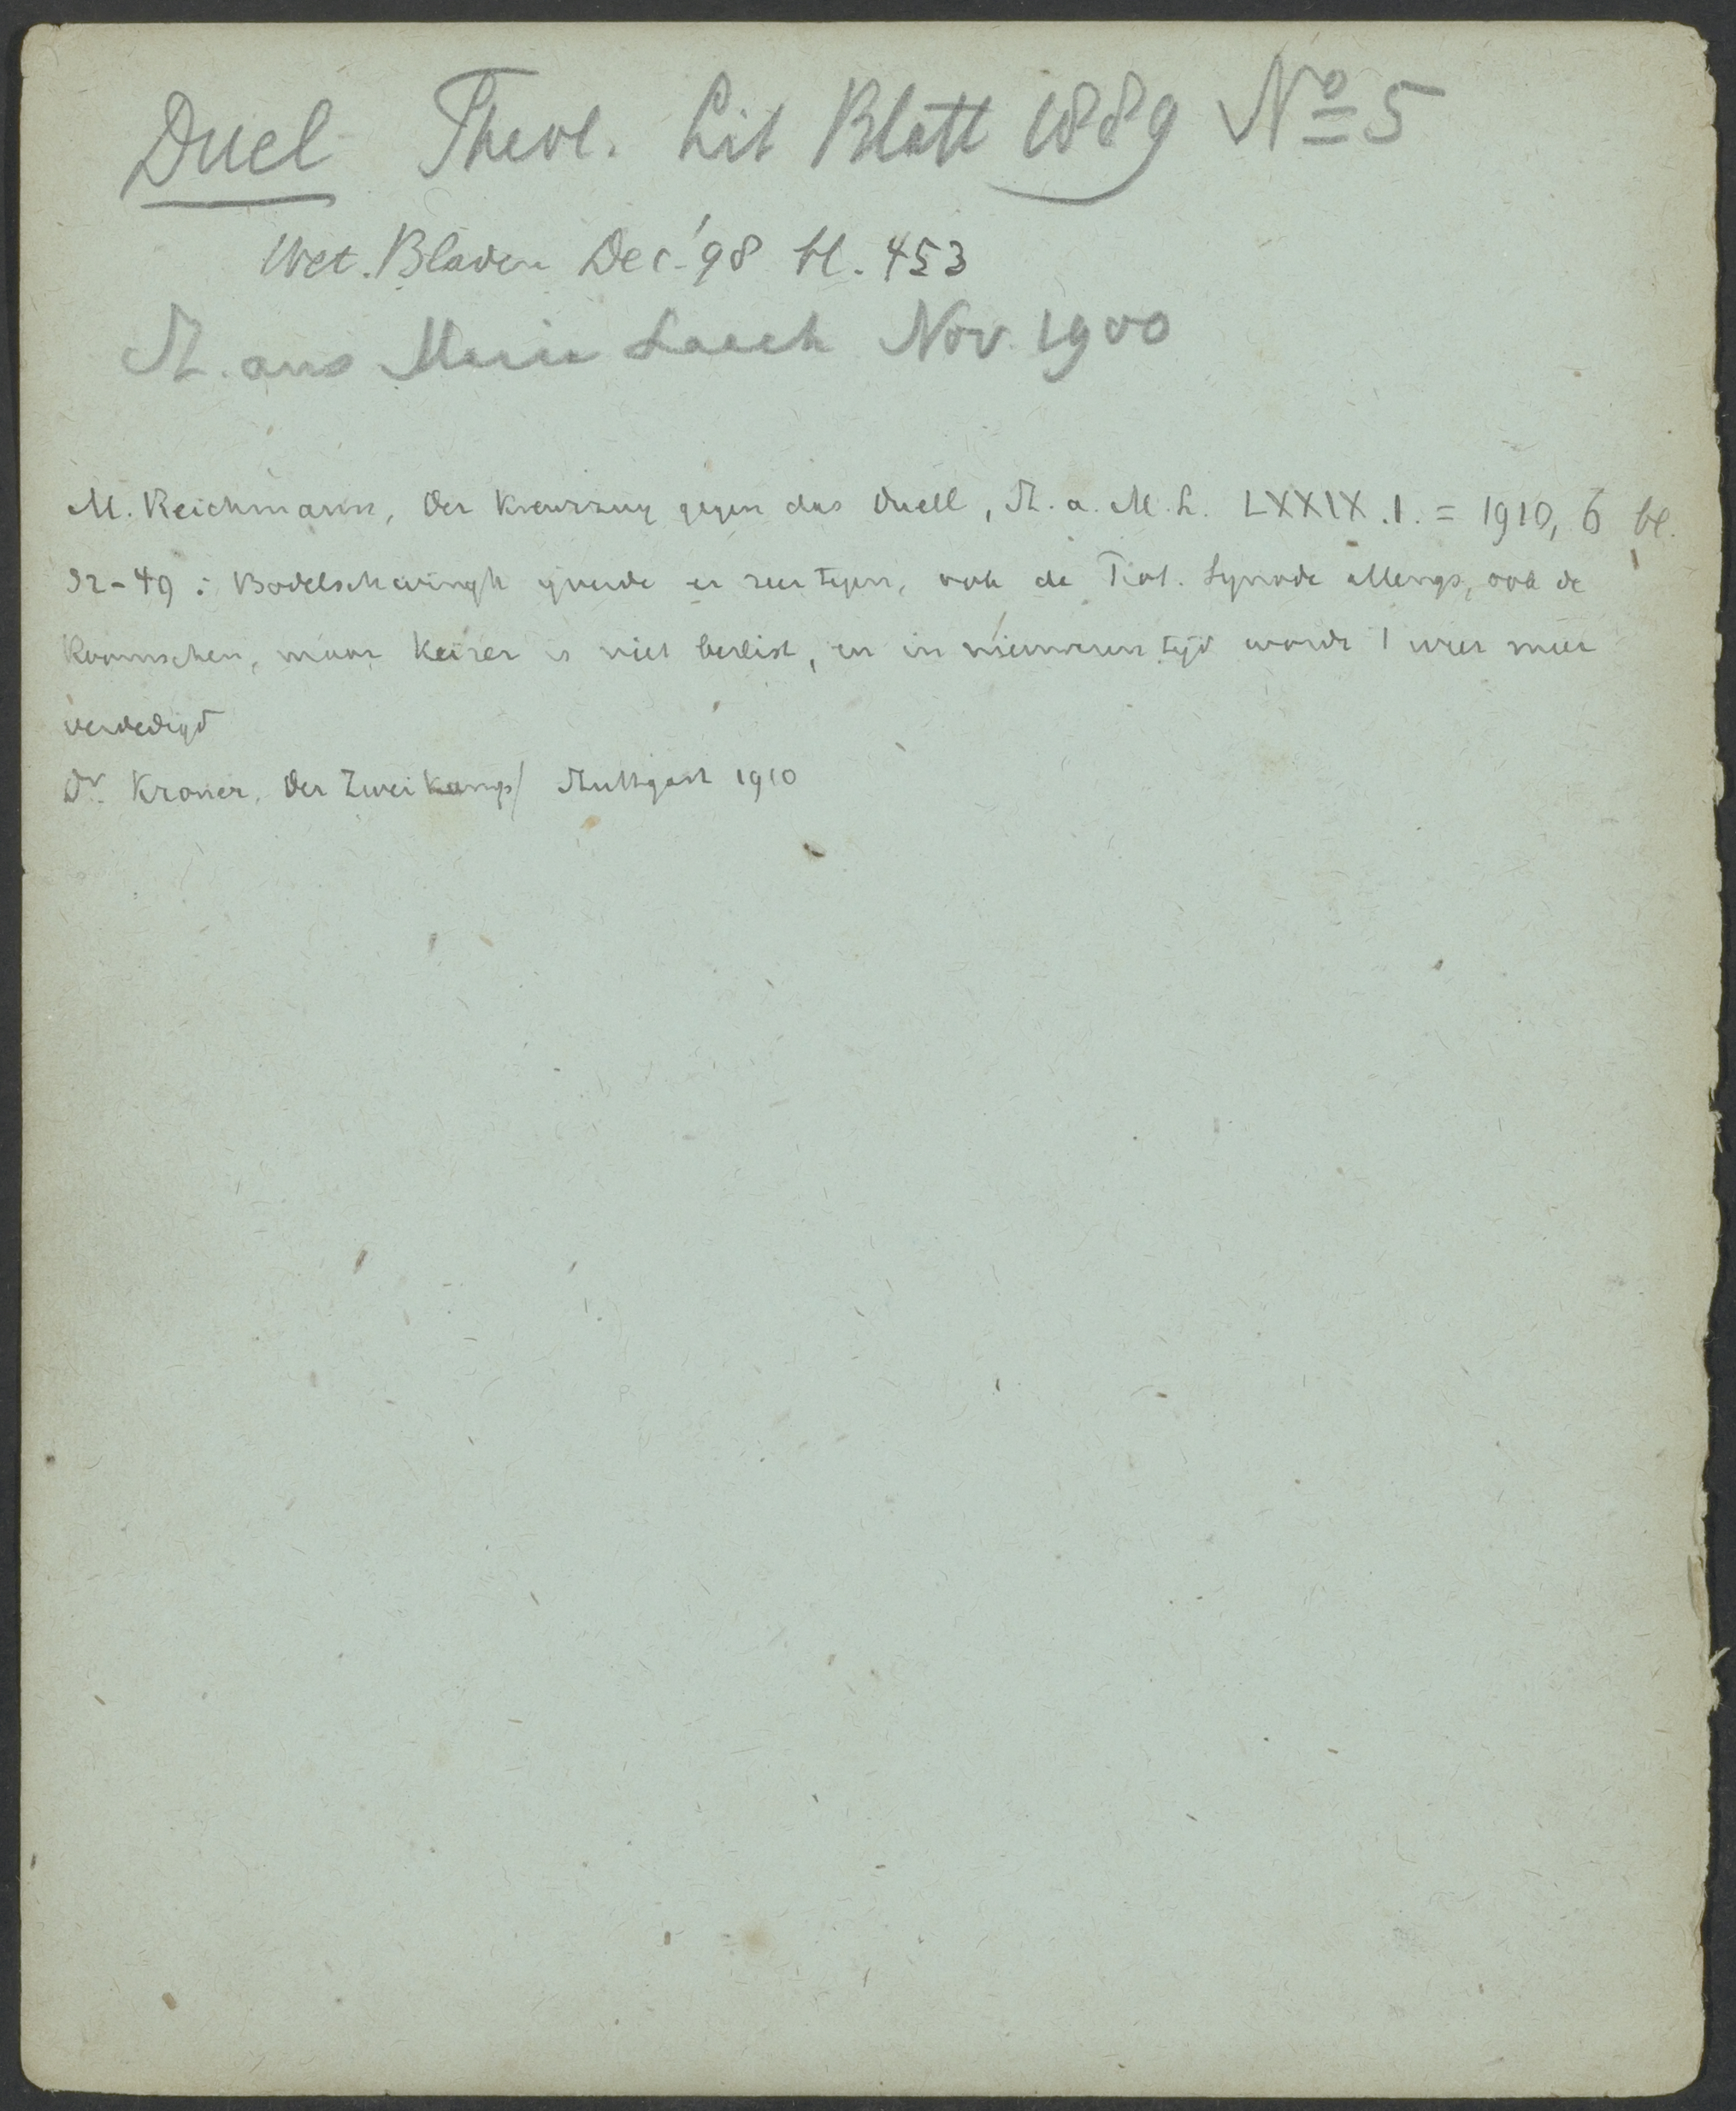 Duel Theol. Lit Blatt 1889 No 5
Wet. Bladen Dec. '98 bl. 453
St. aus Maria Laach Nov. 1900
M. Reichmann, Der Kreuzzug gegen das Duell, St. a. M. L. LXXIX.1. = 1910, 6 bl.
32-49: Bodelschwingh ijverde er zeer tegen, ook de Synode allengs, ook de
Roomschen, maar Keizer is niet beslist, en in nieuweren tijd wordt 't weer meer
verdedigd
Dr. Kroner, Der Zweikampf Stuttgart 1910